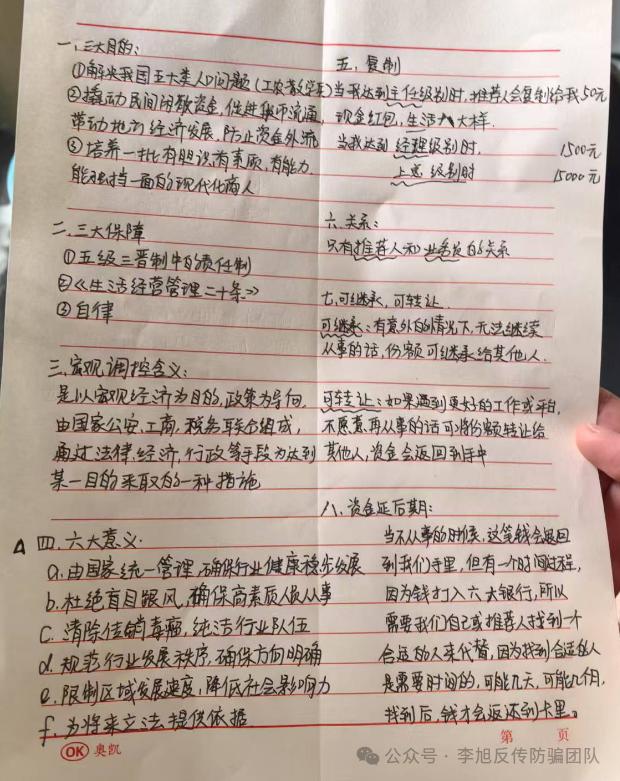 一、三大目的:
①解决我国五大类人口问题(工农商学兵)
②撬动民间闲散资金,促进货币流通,
带动地方经济发展,防止资金外流
③培养一批有胆识有素质,有能力,
能独挡一面的现代化商人
二、三大保障
①五级三晋制中的责任制
②《生活经营管理二十条》
③自律
三、宏观调控含义:
是以宏观经济为目的,政策为导向,
由国家公安,工商,税务联合组成,
通过法律,经济,行政等手段为达到
某一目的采取的一种措施
四、六大意义.
a.由国家统一管理,确保行业健康稳步发展
b.杜绝盲目跟风,确保高素质人做从事
c.清除传销毒瘤,纯洁行业队伍
d.规范行业发展秩序,确保方向明确
e.限制区域发展速度,降低社会影响力
f.为将来立法提供依据
五、复制
当我达到主任级别时,推荐人会复制给我50元
现金红包,生活八大样.
当我达到经理级别时, 1500元
上总级别时 15000元
六、关系:
只有推荐人和业务员的关系
七、可继承,可转让.
可继承:有意外的情况下,无法继续
从事的话,份额可继承给其他人.
可转让:如果遇到更好的工作或平台,
不愿意再从事的话可将份额转让给
其他人,资金会返回到手中
八、资金延后期:
当不从事的时候,这笔钱会返回
到我们手里,但有一个时间过程,
因为钱打入六大银行,所以
需要我们自己或推荐人找到一个
合适的人来代替,因为找到合适的人
是需要时间的,可能几天,可能几个月,
找到后,钱才会返还到卡里。
OK 奥凯
第 页
公众号·李旭反传防骗团队